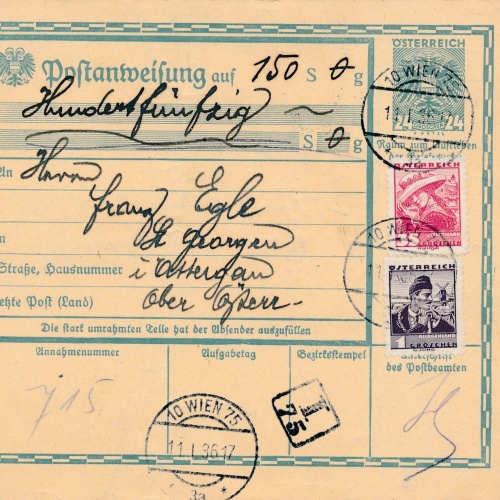 Postanweisung auf 150 S θ g
ÖSTERREICH
24 24
Hundertfünfzig ~
S θ g
Raum zum Aufkleben
An
Herrn
Franz Egle
St Georgen
Straße, Hausnummer i Attergau
Letzte Post (Land) Ober Österr-
Die stark umrahmten Teile hat der Absender auszufüllen
Annahmenummer Aufgabetag Bezirksstempel
des Postbeamten
715
10 WIEN 75
11.I.36.17
3a
1.
75
10 WIEN 75
11.I.36.17
10 WIEN
11
3
GROSCHEN
ÖSTERREICH
BURGENLAND
1 GROSCHEN